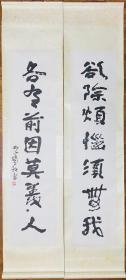 欲除煩惱須無我
各有前因莫羨人